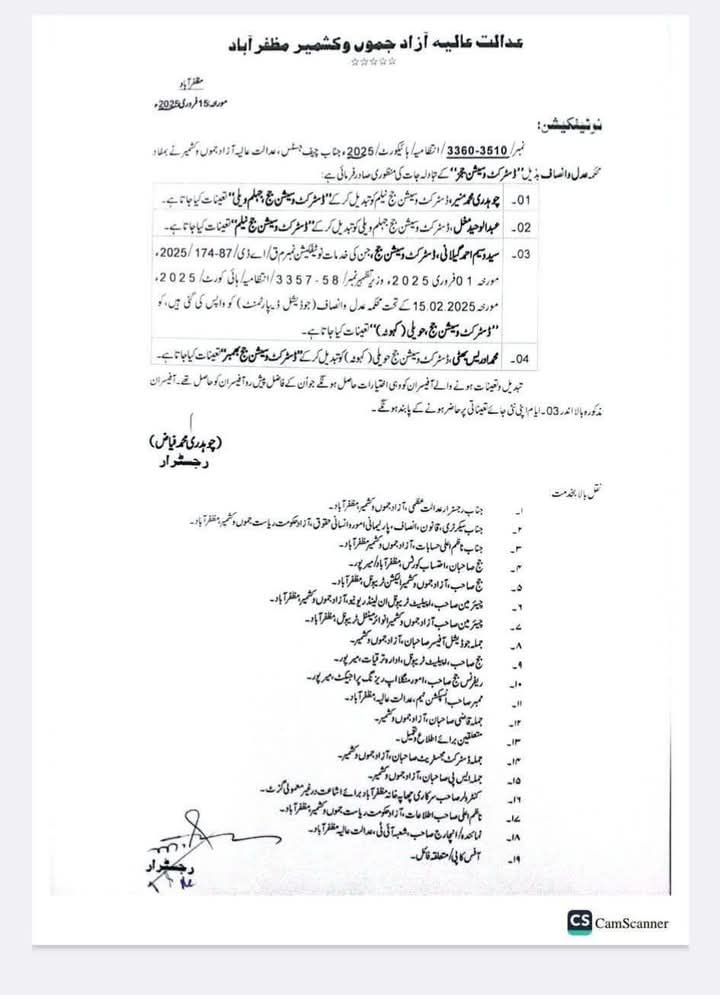 عدالت عالیہ آزاد جموں و کشمیر مظفرآباد
☆☆☆☆☆
مظفرآباد
مورخہ 15 فروری 2025ء
نوٹیفکیشن:
نمبر/ 3360-3510 /انتظامیہ/ ہائیکورٹ/ 2025ء جناب چیف جسٹس، عدالت عالیہ آزاد جموں و کشمیر نے بمفاد
محکمہ عدل و انصاف بذیل "ڈسٹرکٹ و سیشن ججز" کے تبادلہ جات کی منظوری صادر فرمائی ہے:
01۔ چوہدری محمد منیر، ڈسٹرکٹ و سیشن جج نیلم کو تبدیل کر کے "ڈسٹرکٹ و سیشن جج، جہلم ویلی" تعینات کیا جاتا ہے۔
02۔ عبدالوحید مغل، ڈسٹرکٹ و سیشن جج جہلم ویلی کو تبدیل کر کے "ڈسٹرکٹ و سیشن جج نیلم" تعینات کیا جاتا ہے۔
03۔ سید وسیم احمد گیلانی، ڈسٹرکٹ و سیشن جج، جن کی خدمات نوٹیفکیشن نمبر م ق/ اے ڈی/ 87-174/ 2025ء
مورخہ 01 فروری 2025ء و زیر نمبر/ 58-3357/انتظامیہ/ ہائی کورٹ/ 2025ء
مورخہ 15.02.2025 کے تحت محکمہ عدل و انصاف (جوڈیشل ڈیپارٹمنٹ) کو واپس کی گئی ہیں، کو
"ڈسٹرکٹ و سیشن جج، حویلی (کہوٹہ)" تعینات کیا جاتا ہے۔
04۔ محمد ادریس بھٹی، ڈسٹرکٹ و سیشن جج حویلی (کہوٹہ) کو تبدیل کر کے "ڈسٹرکٹ و سیشن جج بھمبر" تعینات کیا جاتا ہے۔
تبدیل و تعینات ہونے والے آفیسران کو وہی اختیارات حاصل ہونگے جو اُن کے فاضل پیش رو آفیسران کو حاصل تھے۔ آفیسران
مذکورہ بالا اندر 03۔ ایام اپنی نئی جائے تعیناتی پر حاضر ہونے کے پابند ہونگے۔
(چوہدری محمد فیاض)
رجسٹرار
نقل بالا بخدمت
۱۔ جناب رجسٹرار عدالت عظمیٰ، آزاد جموں و کشمیر مظفرآباد۔
۲۔ جناب سیکرٹری، قانون، انصاف، پارلیمانی امور و انسانی حقوق، آزاد حکومت ریاست جموں و کشمیر مظفرآباد۔
۳۔ جناب ناظم اعلیٰ حسابات، آزاد جموں و کشمیر مظفرآباد۔
۴۔ جج صاحبان، احتساب کورٹس، مظفرآباد/ میرپور۔
۵۔ جج صاحب، آزاد جموں و کشمیر الیکشن ٹریبونل، مظفرآباد۔
۶۔ چیئرمین صاحب، اپیلیٹ ٹریبونل ان لینڈ ریونیو، آزاد جموں و کشمیر، مظفرآباد۔
۷۔ چیئرمین صاحب آزاد جموں و کشمیر انوائرمینٹل ٹریبونل مظفرآباد۔
۸۔ جملہ جوڈیشل آفیسر صاحبان، آزاد جموں و کشمیر۔
۹۔ جج صاحب، اپیلیٹ ٹریبونل، ادارہ ترقیات، میرپور۔
۱۰۔ ریفرنس جج صاحب، امور منگلا اپ ریزنگ پراجیکٹ، میرپور۔
۱۱۔ ممبر صاحب انسپکشن ٹیم، عدالت عالیہ مظفرآباد۔
۱۲۔ جملہ قاضی صاحبان، آزاد جموں و کشمیر۔
۱۳۔ متعلقین برائے اطلاع و تعمیل۔
۱۴۔ جملہ ڈسٹرکٹ مجسٹریٹ صاحبان، آزاد جموں و کشمیر۔
۱۵۔ جملہ ایس پی صاحبان، آزاد جموں و کشمیر۔
۱۶۔ کنٹرولر صاحب سرکاری چھاپہ خانہ مظفرآباد برائے اشاعت در غیر معمولی گزٹ۔
۱۷۔ ناظم اعلیٰ صاحب اطلاعات، آزاد حکومت ریاست جموں و کشمیر مظفرآباد۔
۱۸۔ نمائندہ/ انچارج صاحب، شعبہ آئی ٹی، عدالت عالیہ مظفرآباد۔
۱۹۔ آفس کاپی/ متعلقہ فائل۔
رجسٹرار
CS CamScanner